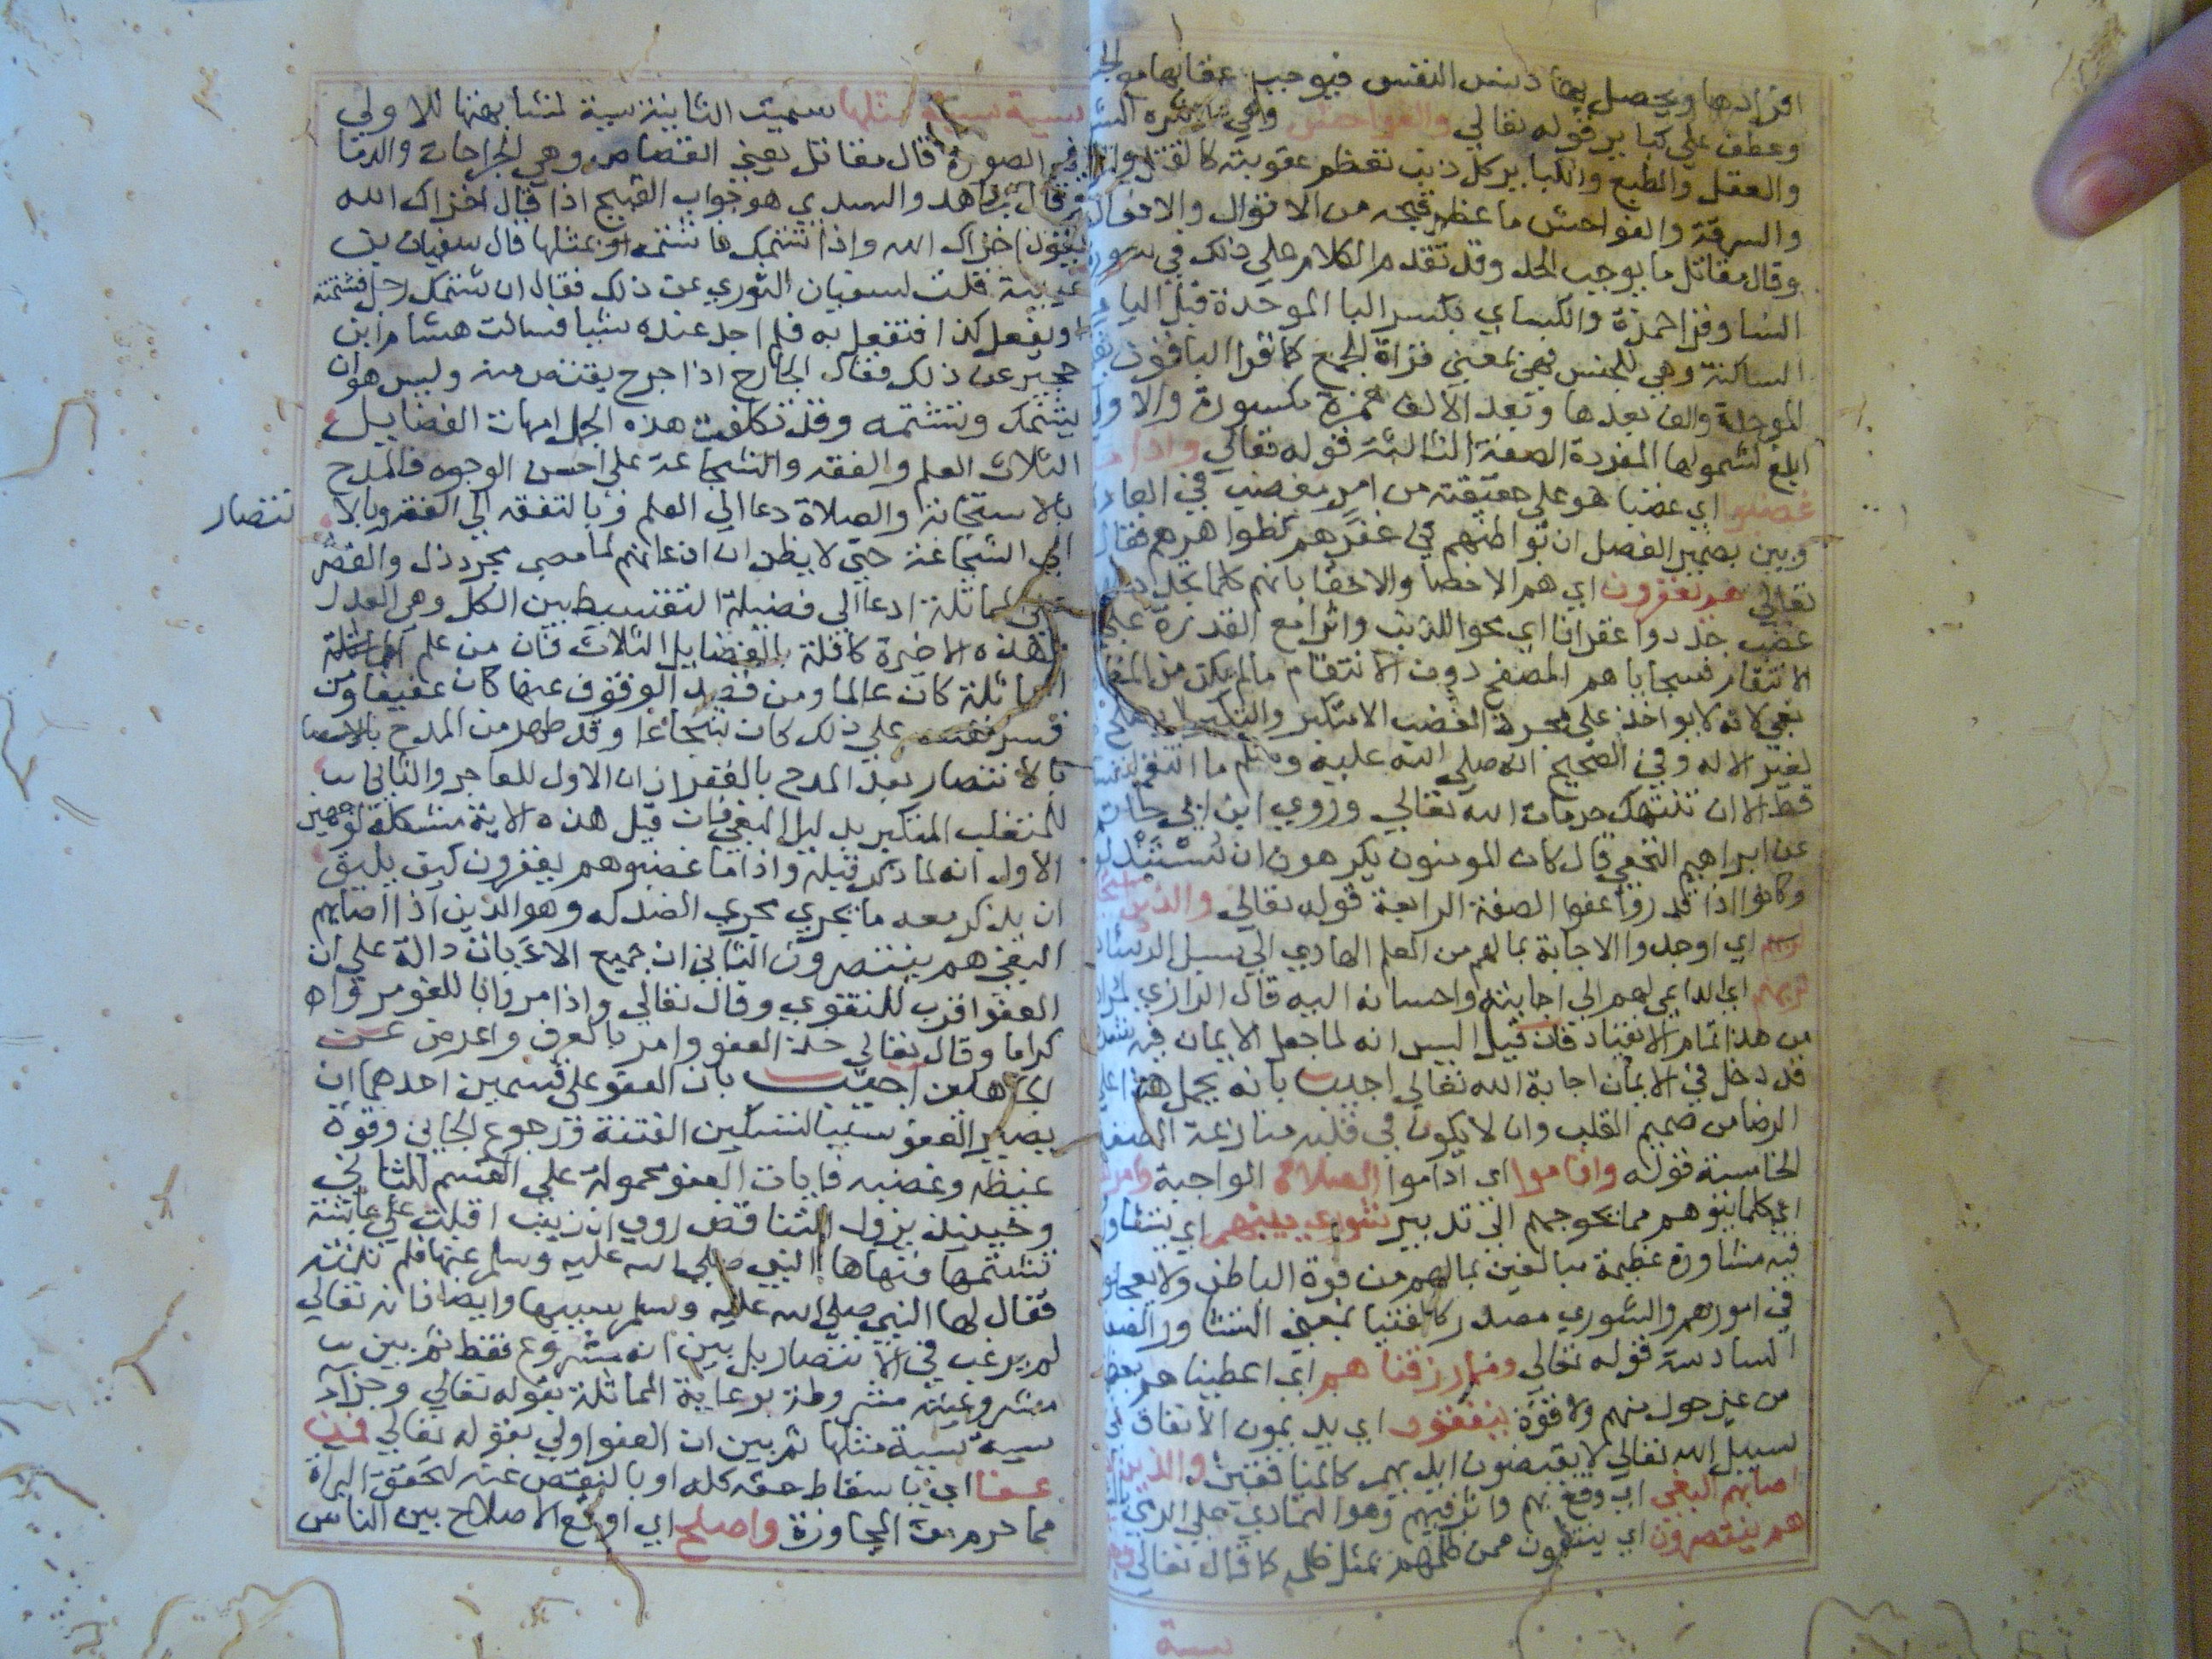 افرادها ويحصل بها دنس النفس فيوجب عقابها مع
وعطف على كباير قوله تعالي والفواحش وهي ما انكره الشرع
والعقل والطبع والكباير كل ذنب تعظم عقوبته كالقتل والزنا
والسرقة والفواحش ما عظم قبحه من الاقوال والافعال
وقال مقاتل ما يوجب الحد وقد تقدم الكلام علي ذلك في سورة
النسا وقرا حمزة والكساي بكسر البا الموحدة قبل اليا
الساكنة وهي للجنس فهي بمعني قراة الجمع كما قرا الباقون بفتح
الموحدة والف بعدها وبعد الالف همزة مكسورة والاولي
ابلغ لشمولها المفردة الصفة الثالثة قوله تعالي واذا ما
غضبوا اي غضبا هو علي حقيقته من امر مغضب في العادة
وبين بضمير الفصل ان بواطنهم في غفرهم كظواهرهم فقال
تعالي هم يغفرون اي هم الاخصا والاحقا بانهم كلما تجدد لهم
غضب جددوا غفرانا اي محوا للذنب واثرا مع القدرة علي
الانتقام فسجاياهم الصفح دون الانتقام مالم يكن من الظالم
بغي لانه لا يواخذ علي مجرد الغضب الا متكبر والتكبر لا يصلح
لغير الاله وفي الصحيح انه صلي الله عليه وسلم ما انتقم لنفسه
قط الا ان تنتهك حرمات الله تعالي وروي ابن ابي حاتم
عن ابراهيم النخعي قال كان المومنون يكرهون ان يستذلوا
وكانوا اذا قدروا عفوا الصفة الرابعة قوله تعالي والذين استجابوا
اي اوجدوا الاجابة بما لهم من العلم الهادي الي سبيل الرشاد
لربهم اي الداعي لهم الي اجابته واحسانه اليه قال الرازي المراد
من هذا تمام الانقياد فان قيل اليس انه لما جعل الايمان فيه شرطا
قد دخل في الايمان اجابة الله تعالي اجيب بانه يحمل هذا علي
الرضا من صميم القلب وان لا يكون في قلبه منازعة الصفة
الخامسة قوله واقاموا اي اداموا الصلاة الواجبة وامرهم
اي كلما ينوهم مما يحوجهم الي تدبير شوري بينهم اي يتشاورون
فيه مشاورة عظيمة مبالغين بمالهم من قوة الباطن ولا يعجلون
في امورهم والشوري مصدر كالفتيا بمعني التشاور الصفة
السادسة قوله تعالي ومما رزقناهم اي اعطيناهم بعظمتنا
من غير حول منهم ولا قوة ينفقون اي يديمون الانفاق في
سبيل الله تعالي لا يقبضون ايديهم كالمنافقين والذين اذا
اصابهم البغي اي وقع بهم واثر فيهم وهو التمادي علي الرمي
هم ينتصرون اي ينتقمون ممن ظلمهم بمثل ظلمه كما قال تعالي وجزا
سية
سية سية مثلها سميت الثانية سية لمشابهتها للاولي
في الصورة قال مقاتل يعني القصاص وهي الجراحات والدما
وقال مجاهد والسدي هو جواب القبيح اذا قال اخزاك الله
يقول اخزاك الله واذا شتمك فاشتمه او بمثلها قال سفيان بن
عيينة قلت لسفيان الثوري عن ذلك فقال ان شتمك رجل فشتمته
او يفعل كذا فتفعل به فلم اجد عنده شيا فسالت هشام ابن
حجير عن ذلك فقال الجارح اذا جرح يقتص منه وليس هو ان
يشتمك وتشتمه وقد تكلفت هذه الجمل امهات الفضايل
الثلاث العلم والفقه والشجاعة علي احسن الوجوه فالمدح
بالاستجابة والصلاة دعا الي العلم وبالنفقة الي الفقه وبالا
نتصار
الي الشجاعة حتي لا يظن ان اذعانهم لما مضي مجرد ذل والقصر
علي المماثلة ادعا الي فضيلة التقسيط بين الكل وهي العدل
وهذه الاخيرة كافلة بالفضايل الثلاث فان من علم المماثلة
المماثلة كان عالما ومن قصد الوقوف عندها كان عفيفا ومن
قسر نفسه علي ذلك كان شجاعا وقد ظهر من المدح بالانتصا
بالانتصار بعد المدح بالغفران ان الاول للعاجز والثاني
للمتغلب المتكبر بدليل البغي فان قيل هذه الاية مشكلة لوجهين
الاول انه لما ذكر قبله واذا ما غضبوا هم يغفرون كيف يليق
ان يذكر معه ما يجري مجري الضد له وهو الذين اذا اصابهم
البغي هم ينتصرون الثاني ان جميع الايات دالة علي ان
العفو اقرب للتقوي وقال تعالي واذا مروا باللغو مروا
كراما وقال تعالي خذ العفو وامر بالعرف واعرض عن
الجاهلين اجيب بان العفو علي قسمين احدهما ان
يصير العفو سببا لتسكين الفتنة ورجوع الجاني وقوة
غيظه وغضبه فايات العفو محمولة علي القسم الثاني
وحينيذ يزول التناقض روي ان زينب اقبلت علي عايشة
تشتمها فنهاها النبي صلي الله عليه وسلم عنها فلم تنته
فقال لها النبي صلي الله عليه وسلم سبيها وايضا فانه تعالي
لم يرغب في الانتصار بل بين انه مشروع فقط ثم بين
مشروعيته مشروطة برعاية المماثلة بقوله تعالي وجزا
سية سية مثلها ثم بين ان العفو اولي بقوله تعالي فمن
عفا اي باسقاط حقه كله او بالنقص عنه لتحقق البراة
مما حرم من المجاوزة واصلح اي اوقع الاصلاح بين الناس